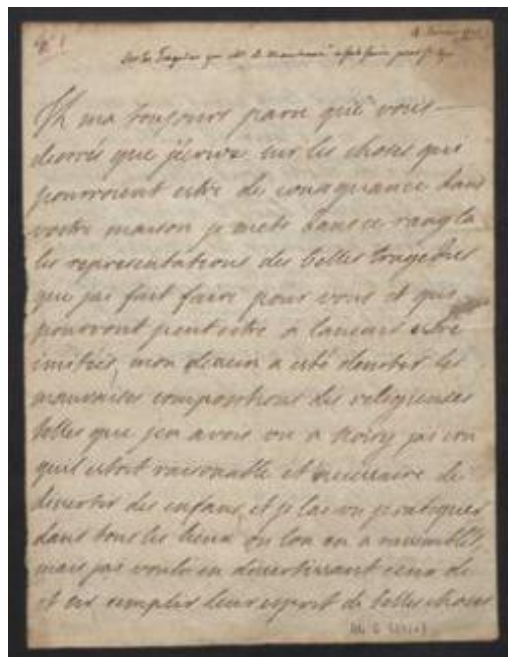 Il ma tousjours paru que vous
desirés que jecrive sur les choses qui
pourroient estre de consequance dans
vostre maison je mets dans ce rang la
les representations des belles tragedies
que jai fait faire pour vous et qui
pourront peut estre a lavenir estre
imitées, mon dessein a esté deviter les
mauvaises compositions des religieuses
telles que jen avois vu a Noisy jai cru
quil estoit raisonnable et necessaire de
divertir des enfans et je lai vu pratiquer
dans tous les lieux ou lon en a rassemblés
mais jai voulu en divertissant ceux de
et cir remplir leur esprit de belles choses